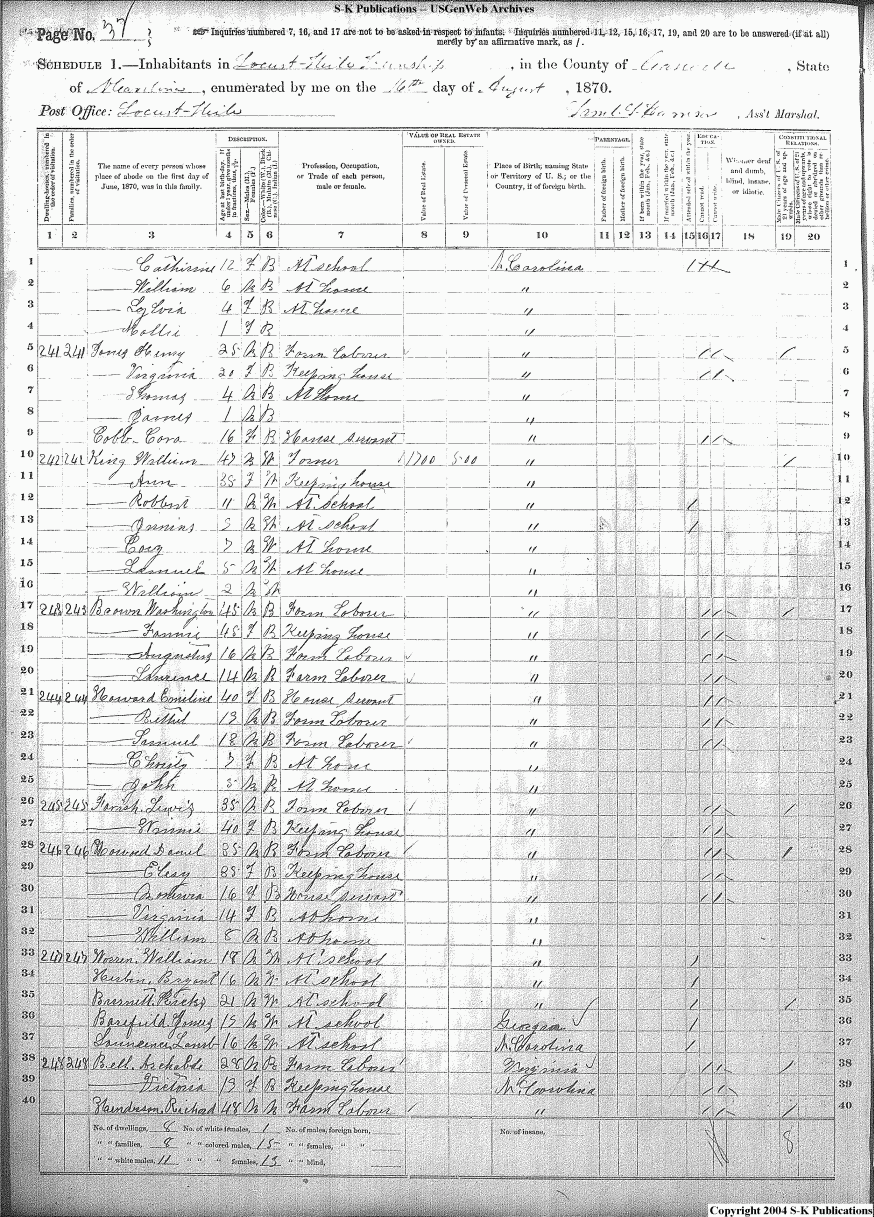 S-K Publications – USGenWeb Archives
Page No. 37
Inquiries numbered 7, 16, and 17 are not to be asked in respect to infants. Inquiries numbered 11, 12, 15, 16, 17, 19, and 20 are to be answered (if at all)
merely by an affirmative mark, as /.
SCHEDULE 1.—Inhabitants in Locust-Hill Township, in the County of Caswell, State
of N Carolina, enumerated by me on the 16th day of August, 1870.
Post Office: Locust-Hill
Ass't Marshal.
DESCRIPTION. VALUE OF REAL ESTATE OWNED. PARENTAGE. EDUCATION. CONSTITUTIONAL RELATIONS.
Dwelling-houses, numbered in the order of visitation.
Families, numbered in the order of visitation.
The name of every person whose place of abode on the first day of June, 1870, was in this family.
Age at last birth-day. If under 1 year, give months in fractions, thus,
Sex.—Males (M.), Females (F.)
Color.—White (W.), Black (B.), Mulatto (M.), Chinese (C.), Indian (I.)
Profession, Occupation, or Trade of each person, male or female.
Value of Real Estate.
Value of Personal Estate.
Place of Birth, naming State or Territory of U. S.; or the Country, if of foreign birth.
Father of foreign birth.
Mother of foreign birth.
If born within the year, state month (Jan., Feb., &c.)
If married within the year, state month (Jan., Feb., &c.)
Attended school within the year.
Cannot read.
Cannot write.
Whether deaf and dumb, blind, insane, or idiotic.
1 2 3 4 5 6 7 8 9 10 11 12 13 14 15 16 17 18 19 20
1 — Catherine 12 F B At school N. Carolina / / / 1
2 — William 6 M B At home " 2
3 — Sylvia 4 F B At home " 3
4 — Mollie 1 F B " 4
5 241 241 Jones Henry 25 M B Farm Laborer " / / / 5
6 — Virginia 20 F B Keeping house " / / 6
7 — Thomas 4 M B At Home " 7
8 — James 1 M B " 8
9 Cobb Cora 16 F B House servant " / / 9
10 242 242 King William 47 M W Farmer 1700 500 " / 10
11 — Ann 35 F W Keeping house " 11
12 — Robbert 11 M W At school " / 12
13 — M W At school " / 13
14 — 7 M W At home " 14
15 — Samuel 5 M W At home " 15
16 — William 2 M W 16
17 243 243 Brown Washington 45 M B Farm Laborer " / / / 17
18 — Fannie 45 F B Keeping house " / / 18
19 — Augustus 16 M B Farm Laborer " / / 19
20 — Laurence 14 M B Farm Laborer " / / 20
21 244 244 Howard Emiline 40 F B House servant " / / 21
22 — Bethel 19 M B Farm Laborer " / / 22
23 — Samuel 18 M B Farm Laborer " / / 23
24 — Christy 7 F B At home " 24
25 — John M B At home " 25
26 245 245 Farish Lewis 35 M B Farm Laborer " / / / 26
27 — Winnie 40 F B Keeping house " / / 27
28 246 246 Howard Daniel 85 M B Farm Laborer " / / / 28
29 — 85 F B Keeping house " / / 29
30 — 16 F B House servant " / / 30
31 — Virginia 14 F B At home " 31
32 — William 8 M B At home " 32
33 247 247 Warren William 18 M W At school " / 33
34 Bryant 16 M W At school " / 34
35 21 M W At school " / / 35
36 Barefield James 19 M W At school Georgia / 36
37 16 M W At school N. Carolina / 37
38 248 248 Bell 28 M B Farm Laborer Virginia / / / 38
39 — Victoria 19 F B Keeping house N. Carolina / / 39
40 Henderson Richard 48 M Farm Laborer " / / / 40
No. of dwellings, 8 No. of white females, 1 No. of males, foreign born, No. of insane,
" " families, 8 " " colored males, 15 " " females, " " 8
" " white males, 11 " " " females, 13 " " blind,
Copyright 2004 S-K Publications